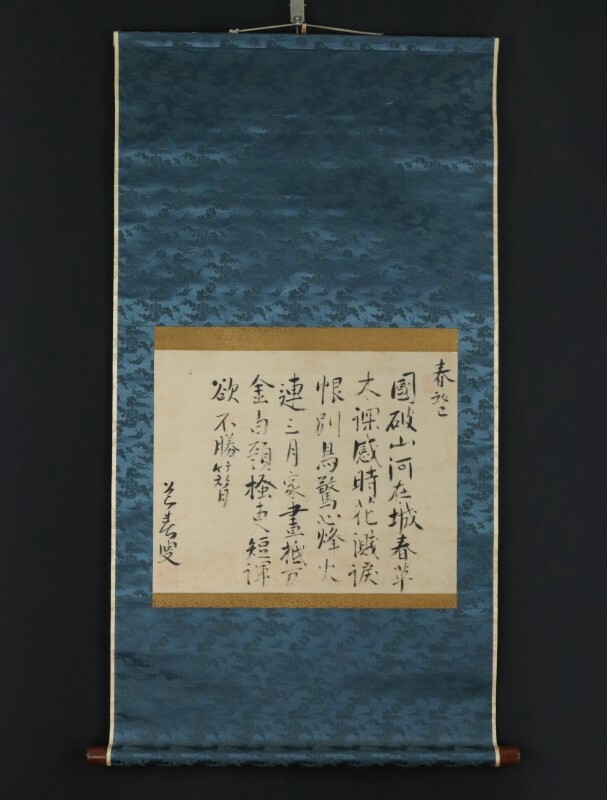 春望
國破山河在城春草
木深感時花濺淚
恨別鳥驚心烽火
連三月家書抵万
金白頭搔更短渾
欲不勝簪
道春叟